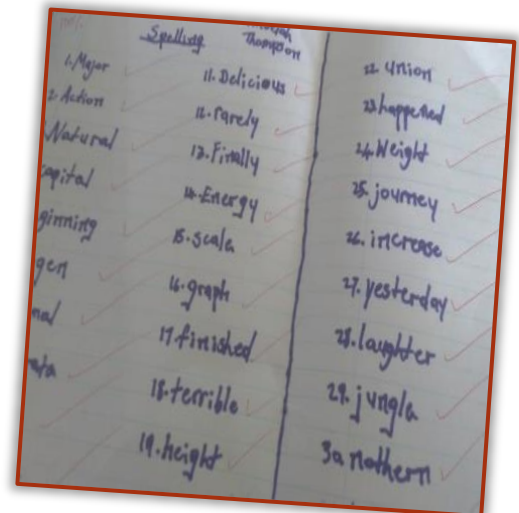 Spelling
Thompson
1. Major
2. Action
Natural
apital
ginning
gen
11. Delicious
12. rarely
13. Finally
14. Energy
15. scale
16. graph
17 finished
18. terrible
19. height
22. union
23. happened
24. Weight
25. journey
26. increase
27. yesterday
28. laughter
29. jungle
30. nothern